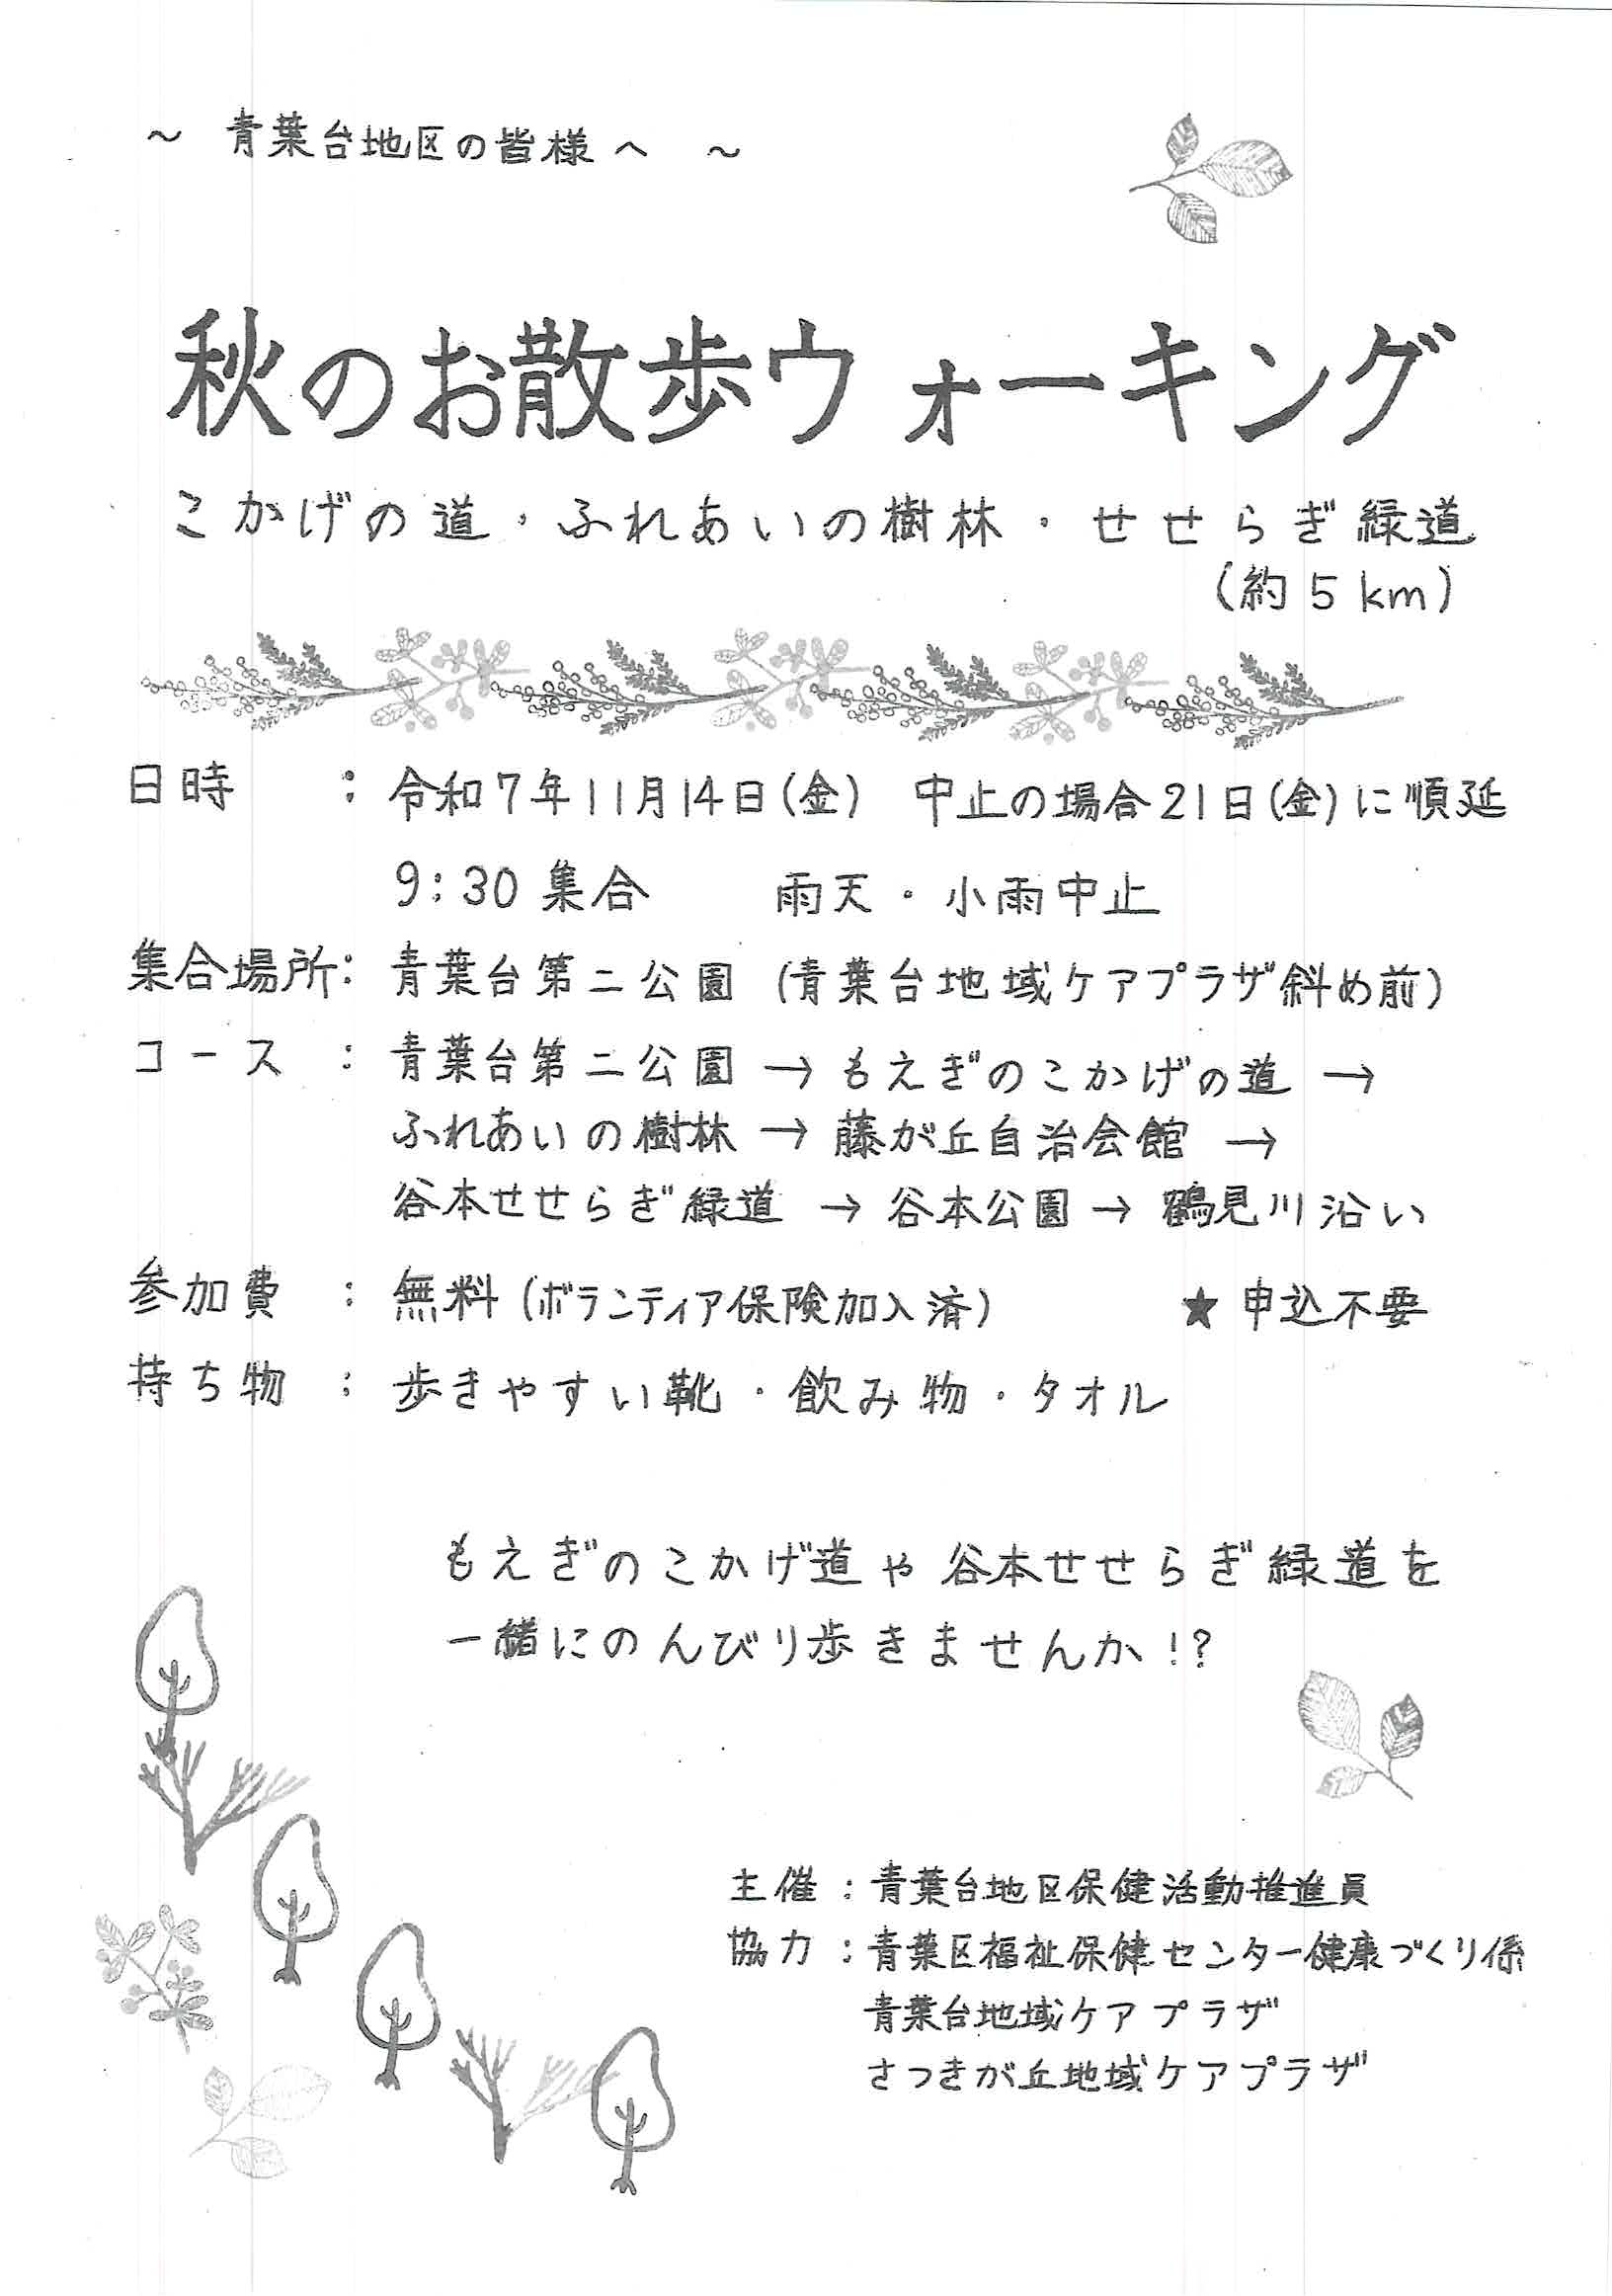 ～ 青葉台地区の皆様へ ～
秋のお散歩ウォーキング
こかげの道・ふれあいの樹林・せせらぎ緑道
(約5km)
日時 : 令和7年11月14日(金) 中止の場合21日(金)に順延
9:30 集合 雨天・小雨中止
集合場所: 青葉台第二公園 (青葉台地域ケアプラザ斜め前)
コース : 青葉台第二公園 → もえぎのこかげの道 →
ふれあいの樹林 → 藤が丘自治会館 →
谷本せせらぎ緑道 → 谷本公園 → 鶴見川沿い
参加費 : 無料 (ボランティア保険加入済) ★ 申込不要
持ち物 : 歩きやすい靴・飲み物・タオル
もえぎのこかげ道や谷本せせらぎ緑道を
一緒にのんびり歩きませんか!?
主催 : 青葉台地区保健活動推進員
協力 : 青葉区福祉保健センター健康づくり係
青葉台地域ケアプラザ
さつきが丘地域ケアプラザ